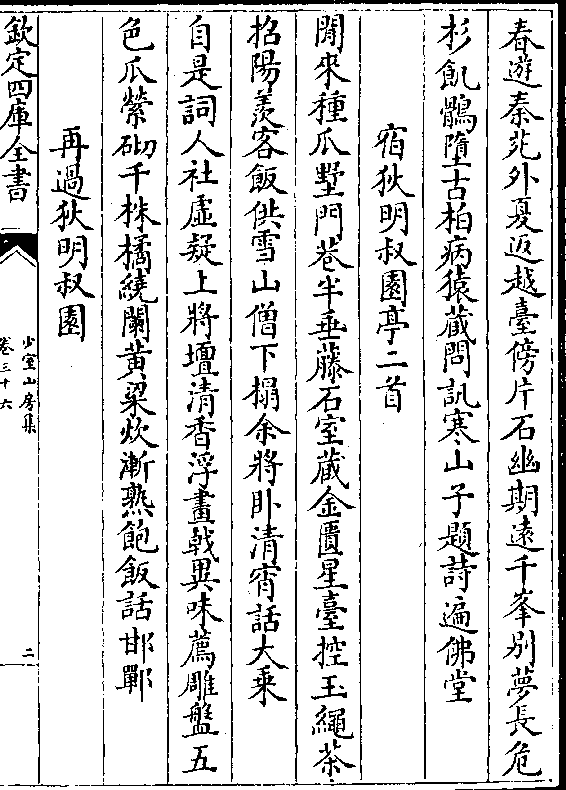 春遊秦苑外夏返越臺傍片石幽期遠千峯别夢長危
杉飢鶻墮古柏病猿藏問訊寒山子題詩遍佛堂
宿狄明叔園亭二首
閒來種瓜墅門巷半垂藤石室藏金匱星臺控玉繩茶
招陽羨客飯供雪山僧下榻余將卧清宵話大乗
自是詞人社虚疑上將壇清香浮畫戟異味薦雕盤五
色瓜縈砌千株橘繞闌黄粱炊漸熟飽飯話邯鄲
再過狄明叔園
欽定四庫全書
少室山房集
卷三十六
二